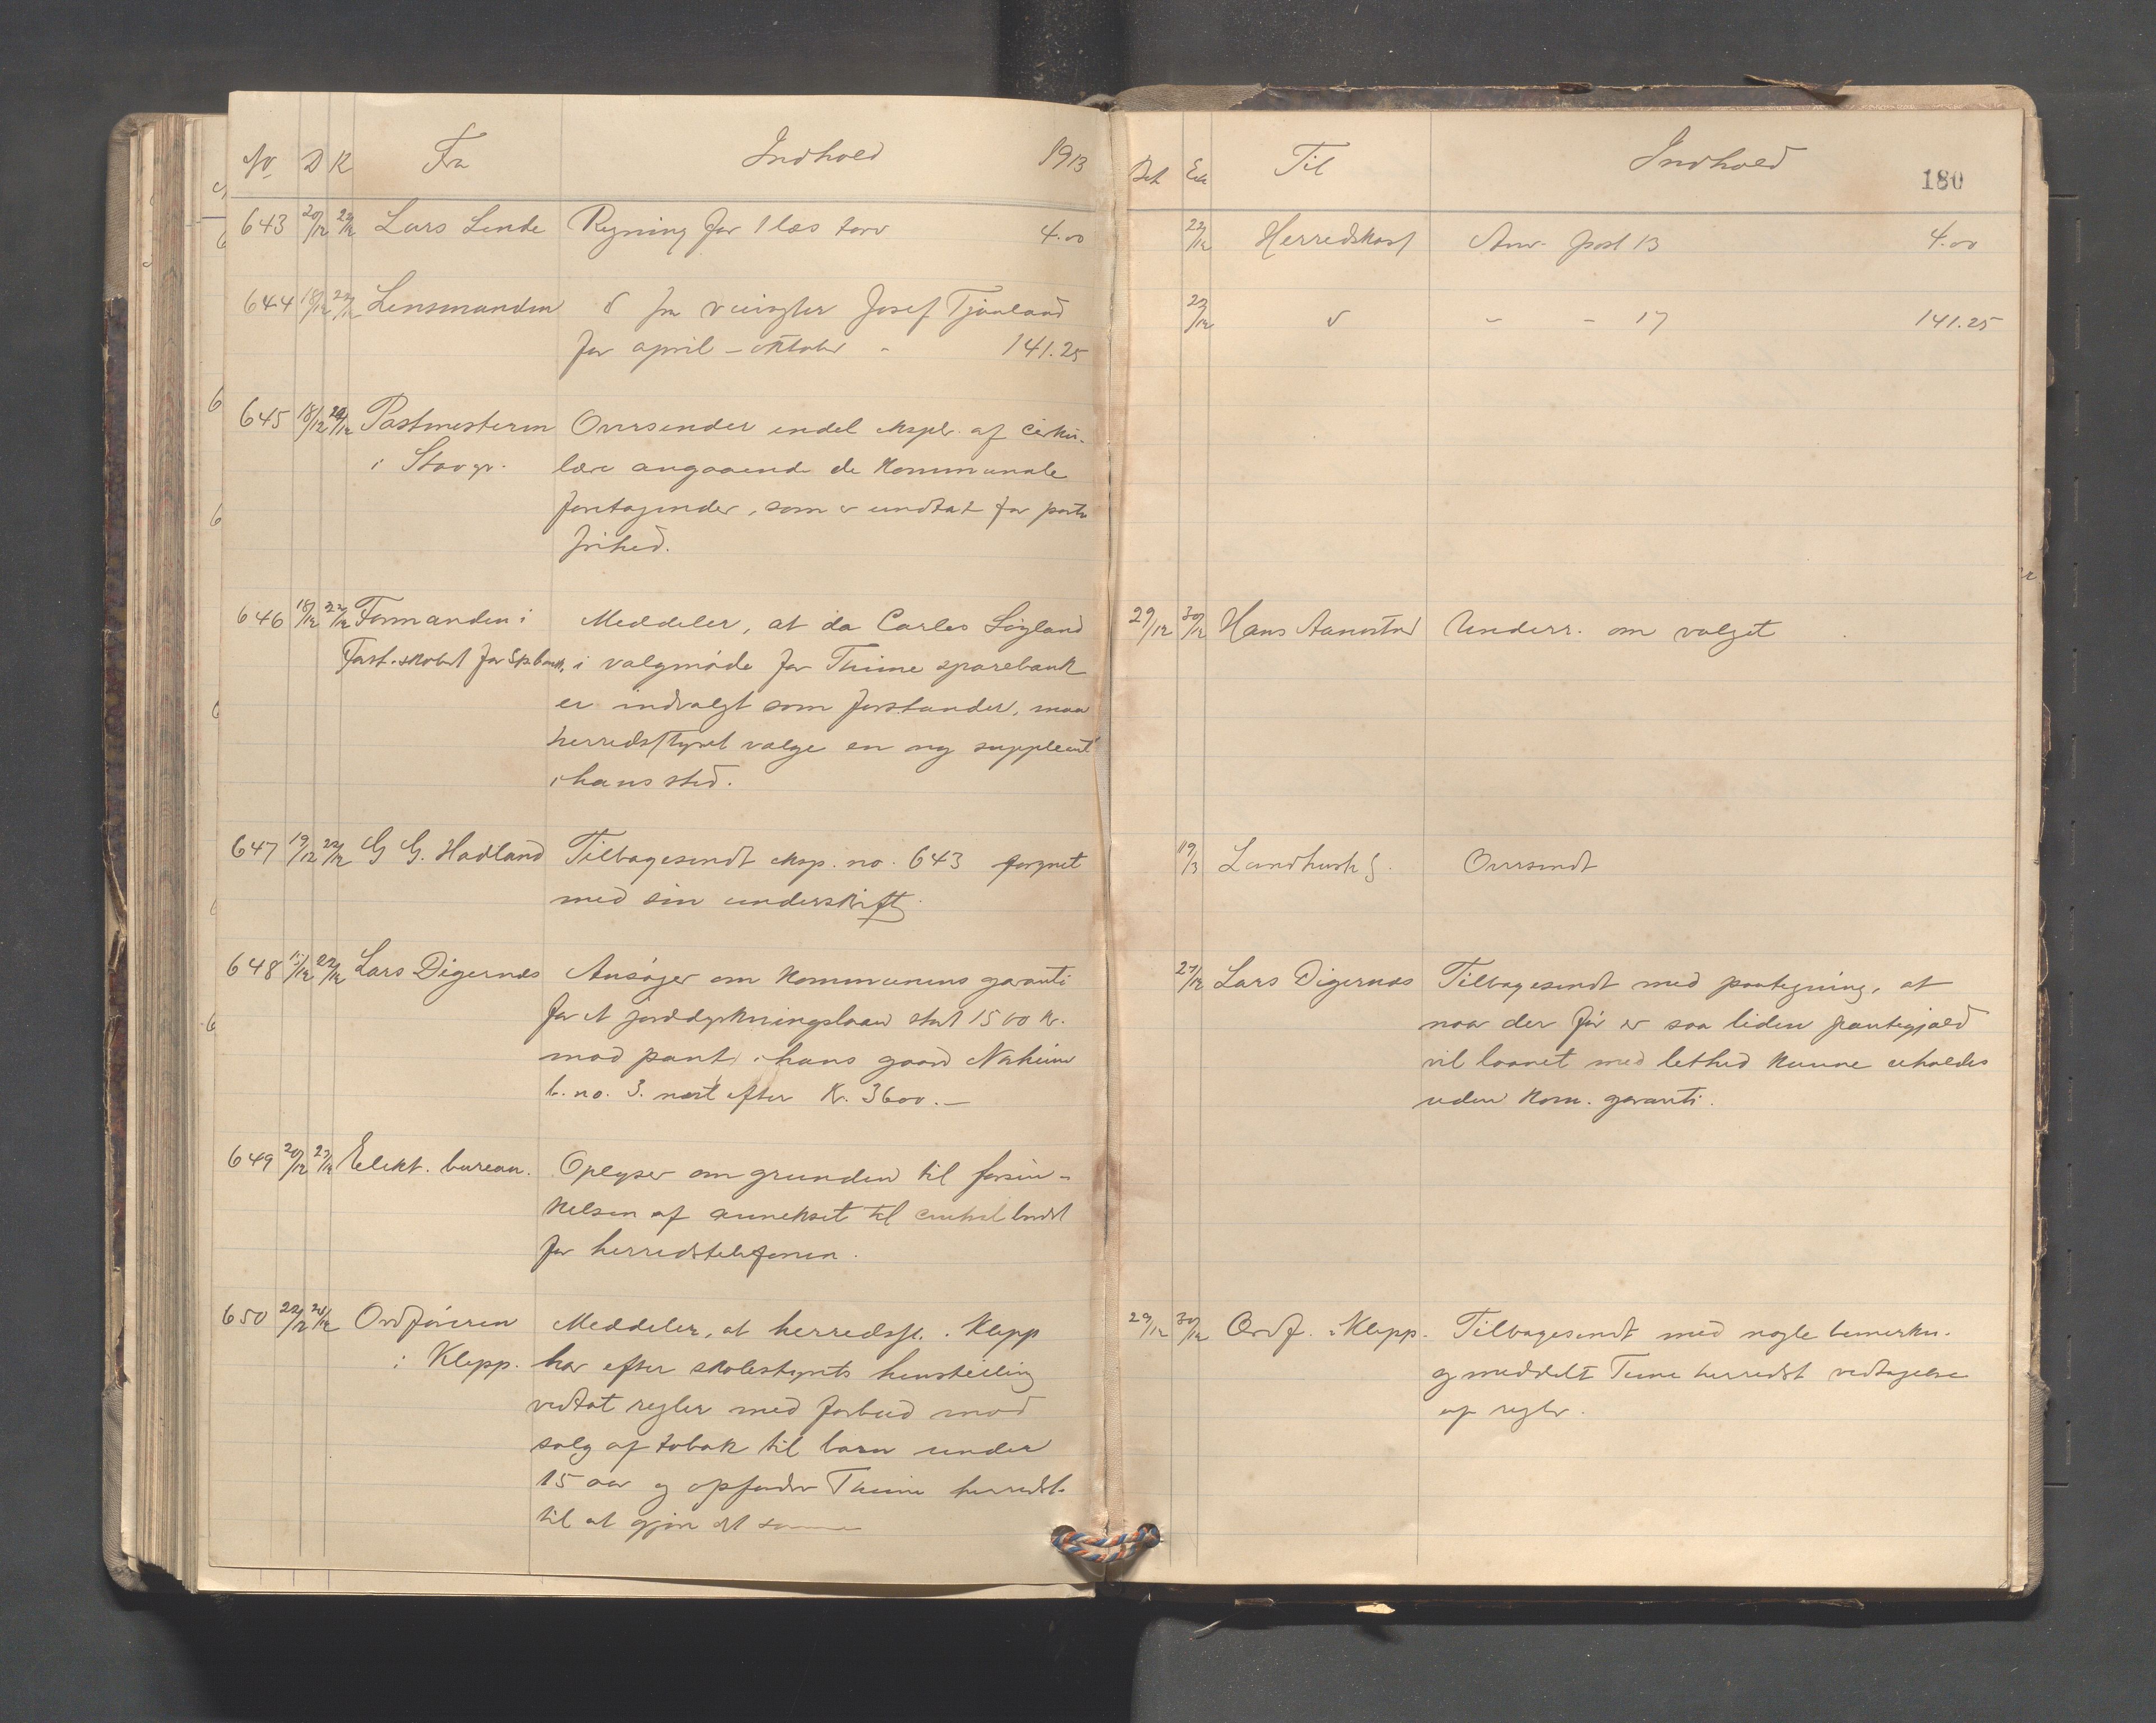 No D K Fra Indhold 1913
643 20/12 22/12 Lars Lende Regning for 1 læs torv 4.00
644 18/12 22/12 Lensmanden d fra veivogter Josef Tjåland
for april - oktober - 141.25
645 18/12 22/12 Postmesteren Oversender endel expl. af cirku-
i Stavgr. lære angaaende de kommunale
foretagender, som er undtat for porto
frihed.
646 18/12 22/12 Formanden i Meddeler, at da Carles Løgland
Forst.skabet for Spbank. i valgmøde for Thime sparebank
er indvalgt som forstander, maa
herredsstyret vælge en ny suppleant
i hans sted.
647 19/12 22/12 G G. Hadland Tilbagesendt exp. no. 643 forsynet
med sin underskrift
648 15/12 22/12 Lars Digernes Ansøger om kommunens garanti
for et jorddyrkningslaan stort 1500 kr.
mod pant i hans gaard Norheim
b. no. 3. næst efter Kr. 3600.-
649 20/12 23/12 Elekt. bureau. Oplyser om grunden til forsin-
kelsen af annekset til centralbordet
for herredstelefonen.
650 22/12 24/12 Ordføreren Meddeler, at herredsst. i Klepp
i Klepp. har efter skolestyrets henstilling
vedtat regler med forbud mod
salg af tobak til barn under
15 aar og opfordrer Thime herredst.
til at gjøre det samme
Bh Exp Til Indhold 180
22/12 Herredskass Anv. post 13 4.00
22/12 d - - 17 141.25
29/12 30/12 Hans Aanestad Underr. om valget
19/3 Landbruksf. Oversendt
27/12 Lars Digernes Tilbagesendt med paategning, at
naar der før er saa liden pantegjæld
vil laanet med lethed kunne erholdes
uden kom. garanti.
29/12 30/12 Ordf. i Klepp. Tilbagesendt med nogle bemerkn.
og meddelt Time herredst vedtagelse
af regler.